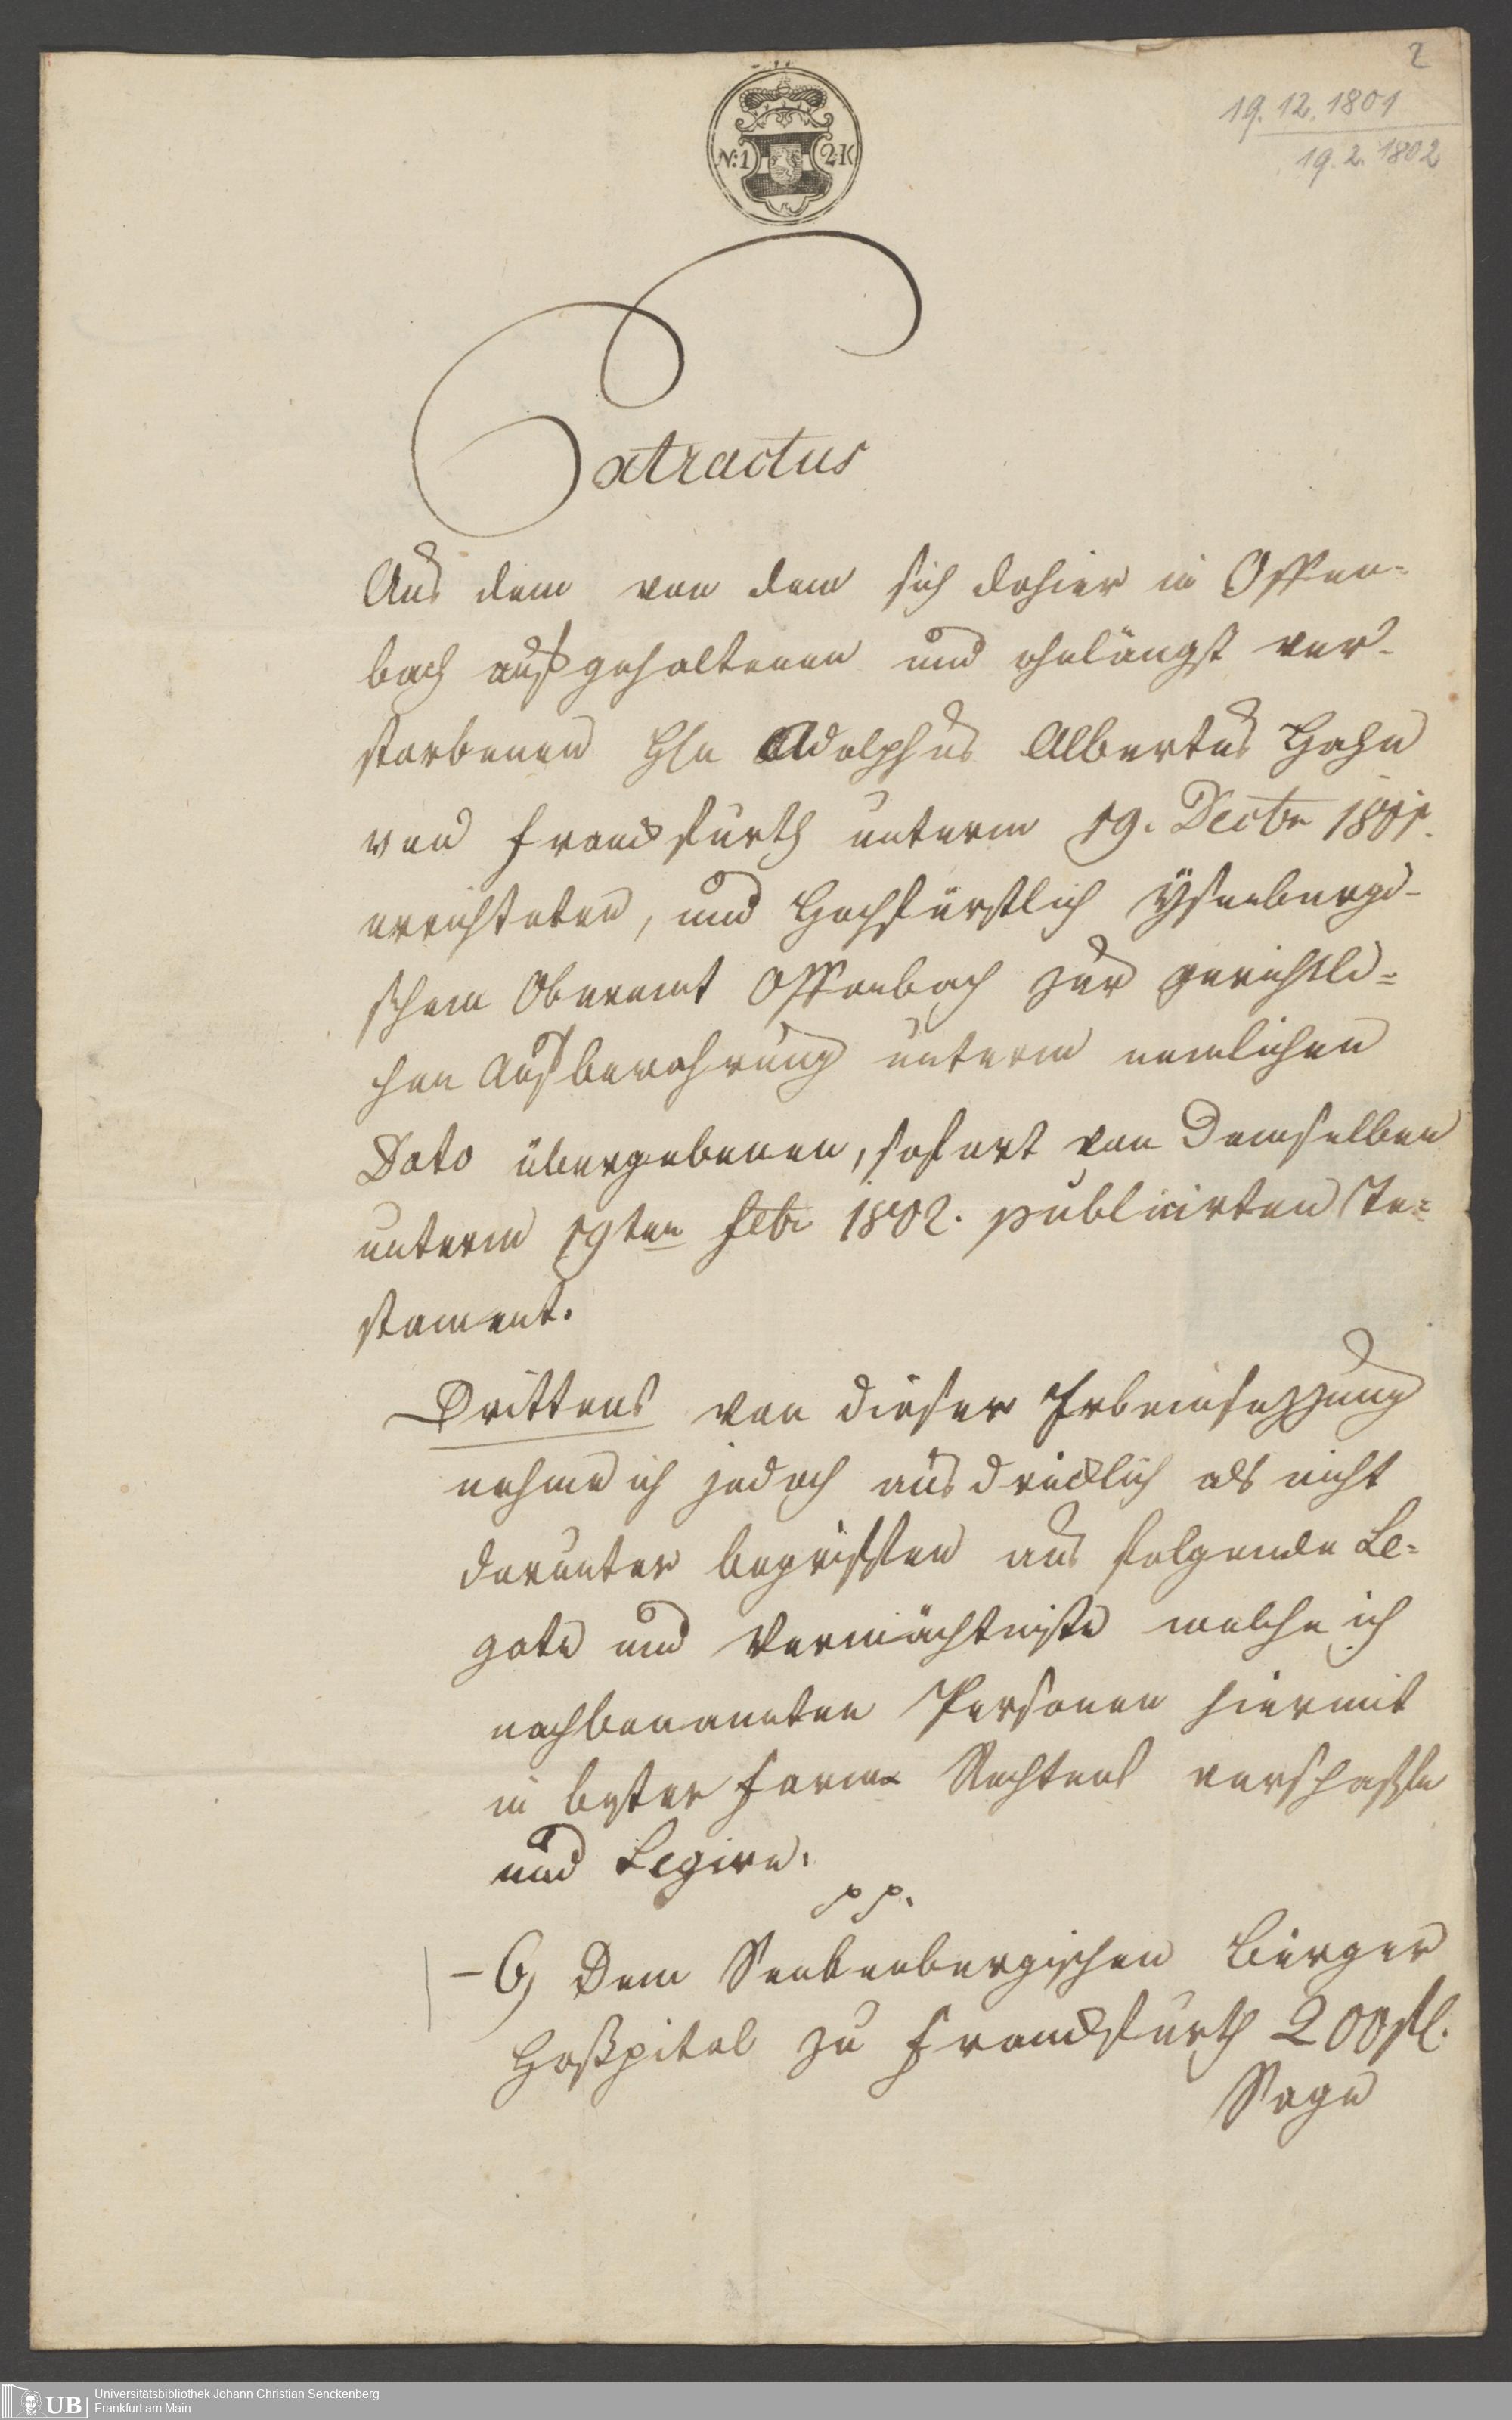 2
19.12.1801
19.2.1802
N:1 2K
Extractus
Aus dem von dem sich dahier in Offen=
bach aufgehaltenen und ohnlängst ver-
storbenen Hln Adolphus Albertus Hahn
von Franckfurth unterm 19. Decbr 1801.
errichteten, und Hochfürstlich Ysenburgi-
schem Oberamt Offenbach zur gerichtli=
chen Aufbewahrung unterm nemlichen
Dato übergebenen, sofort von Demselben
unterm 19ten Febr 1802. publicirten Te=
stament.
Drittens von dieser Erbeinsezzung
nehme ich jedoch ausdrücklich als nicht
darunter begriffen aus folgende Le=
gate und Vermächtniße welche ich
nachbenannten Personen hiermit
in bester Forma Rechtens verschaffe
und Legire.
pp.
-6) Dem Senkenbergischen Bürger
Hoßpital zu Franckfurth 200 fl.
Sage
UB Universitätsbibliothek Johann Christian Senckenberg
Frankfurt am Main